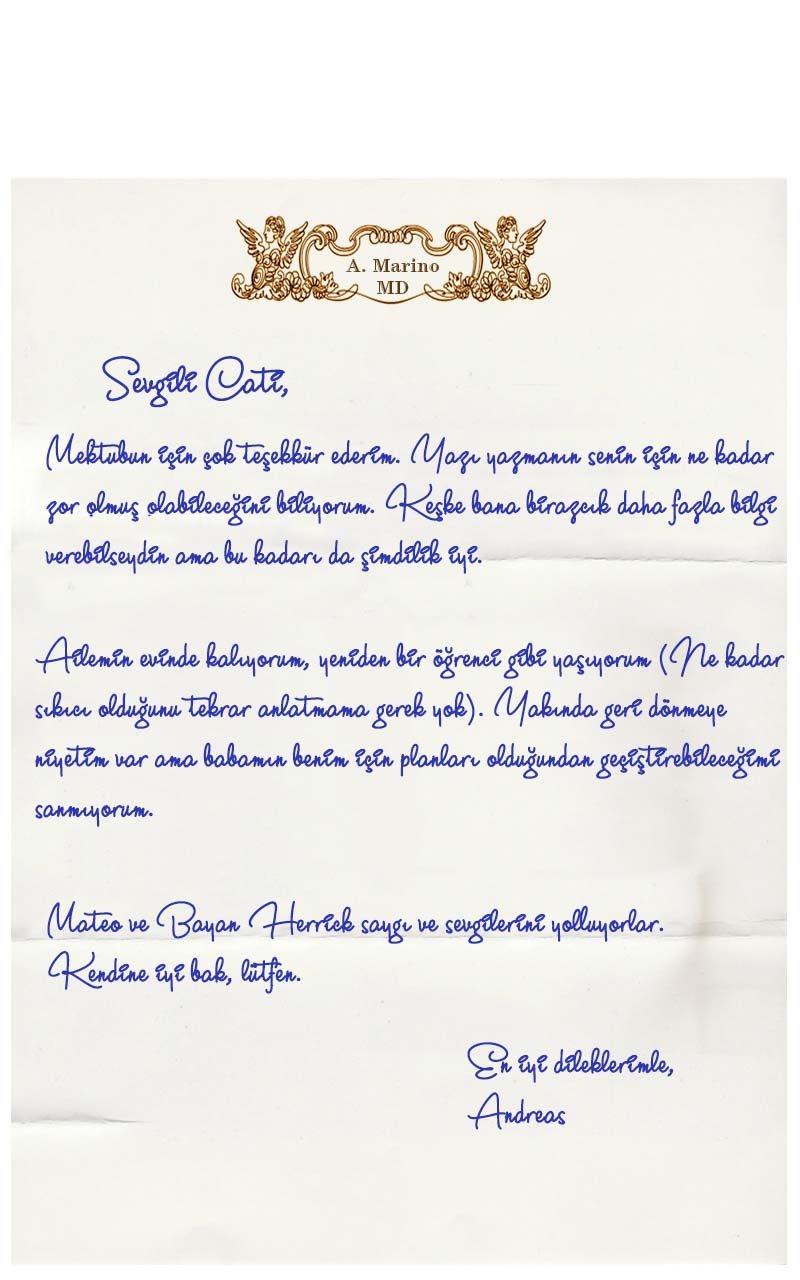 A. Marino
MD
Sevgili Cati,
Mektubun için çok teşekkür ederim. Yazı yazmanın senin için ne kadar
zor olmuş olabileceğini biliyorum. Keşke bana birazcık daha fazla bilgi
verebilseydin ama bu kadarı da şimdilik iyi.
Ailemin evinde kalıyorum, yeniden bir öğrenci gibi yaşıyorum (Ne kadar
sıkıcı olduğunu tekrar anlatmama gerek yok). Yakında geri dönmeye
niyetim var ama babamın benim için planları olduğundan geçiştirebileceğimi
sanmıyorum.
Mateo ve Bayan Herrick saygı ve sevgilerini yolluyorlar.
Kendine iyi bak, lütfen.
En iyi dileklerimle,
Andreas